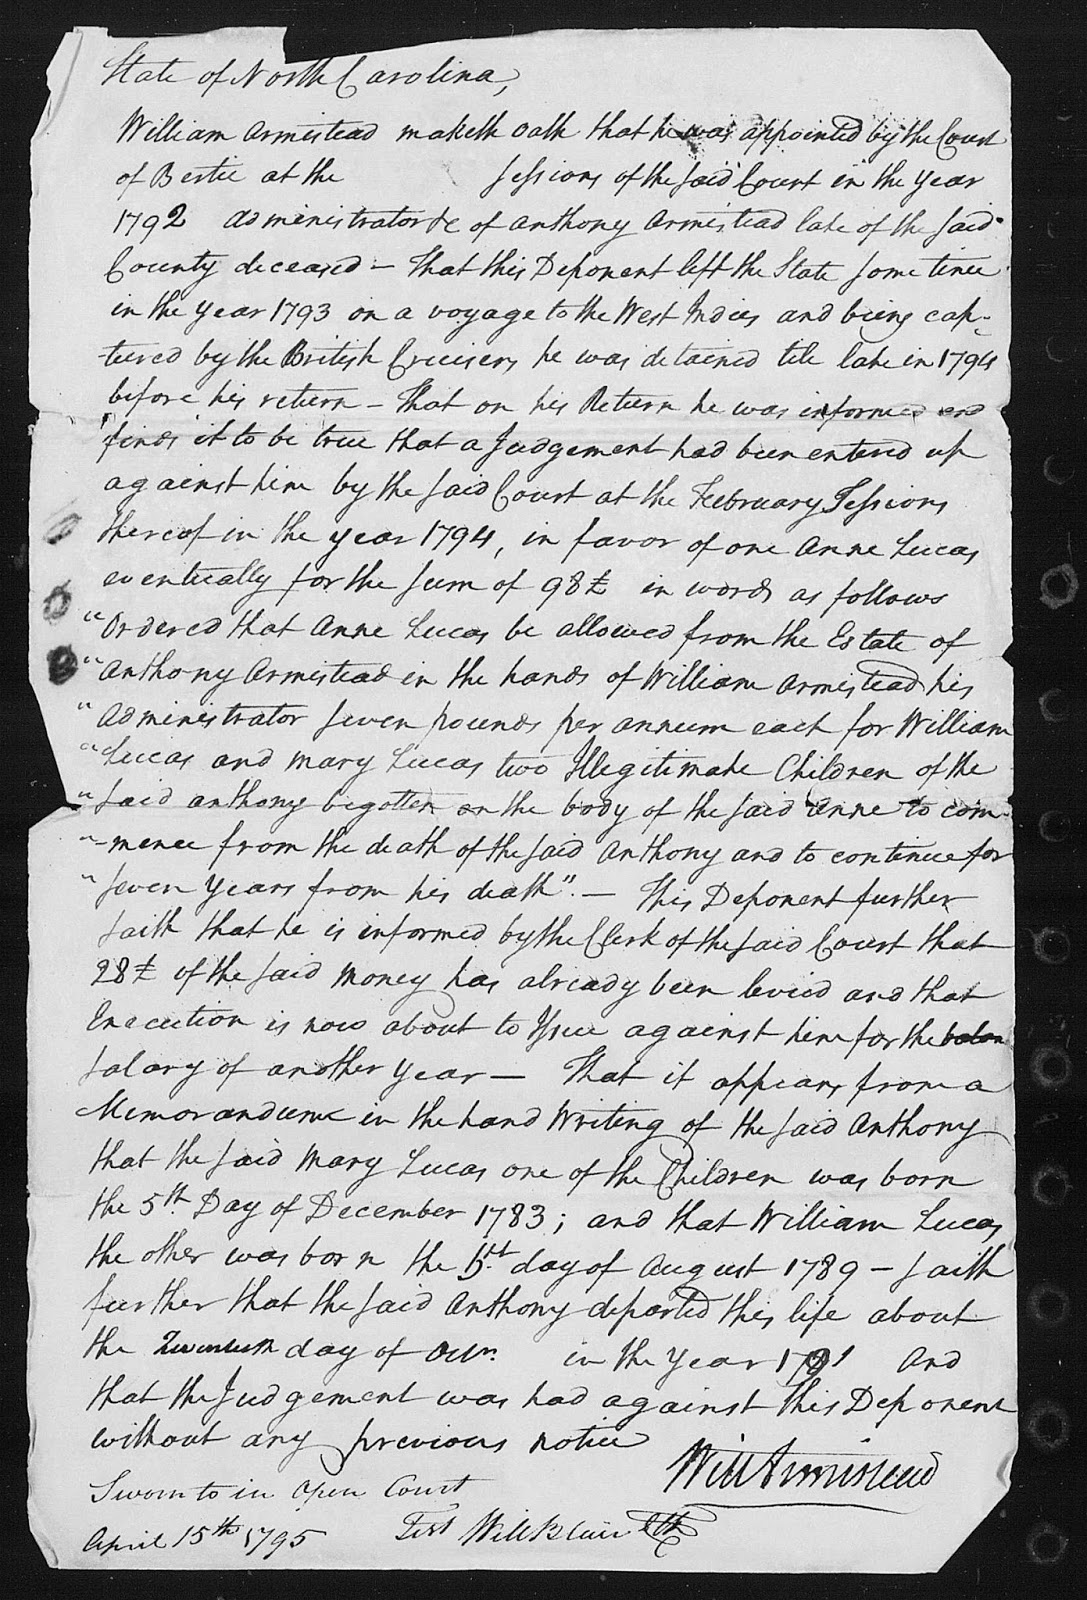 State of North Carolina,
William Armistead maketh oath that he was appointed by the Court
of Bertie at the Sessions of the said Court in the year
1792 administrator &c of Anthony Armistead late of the said
County deceased – That this Deponent left the State some time
in the year 1793 on a voyage to the West Indies and being cap-
tured by the British Cruisers he was detained till late in 1794
before his return – That on his Return he was informed and
finds it to be true that a Judgement had been entered up
against him by the said Court at the February Sessions
thereof in the year 1794, in favor of one Anne Lucas
eventually for the sum of 98£ in words as follows
"Ordered that Anne Lucas be allowed from the Estate of
"Anthony Armistead in the hands of William Armistead his
"Administrator seven pounds per annum each for William
"Lucas and Mary Lucas two Illegitimate Children of the
"said Anthony begotten on the body of the said Anne to com-
"mence from the death of the said Anthony and to continue for
"seven years from his death". – This Deponent further
saith that he is informed by the Clerk of the said Court that
28£ of the said money has already been levied and that
Execution is now about to Issue against him for the
salary of another year – That it appears from a
Memorandum in the hand Writing of the said Anthony
that the said Mary Lucas one of the Children was born
the 5th Day of December 1783; and that William Lucas
the other was born the day of August 1789 – saith
further that the said Anthony departed this life about
the day of in the year 1791 And
that the Judgement was had against this Deponent
without any previous notice
Will Armistead
Sworn to in Open Court
April 15th 1795 Test Will Blair